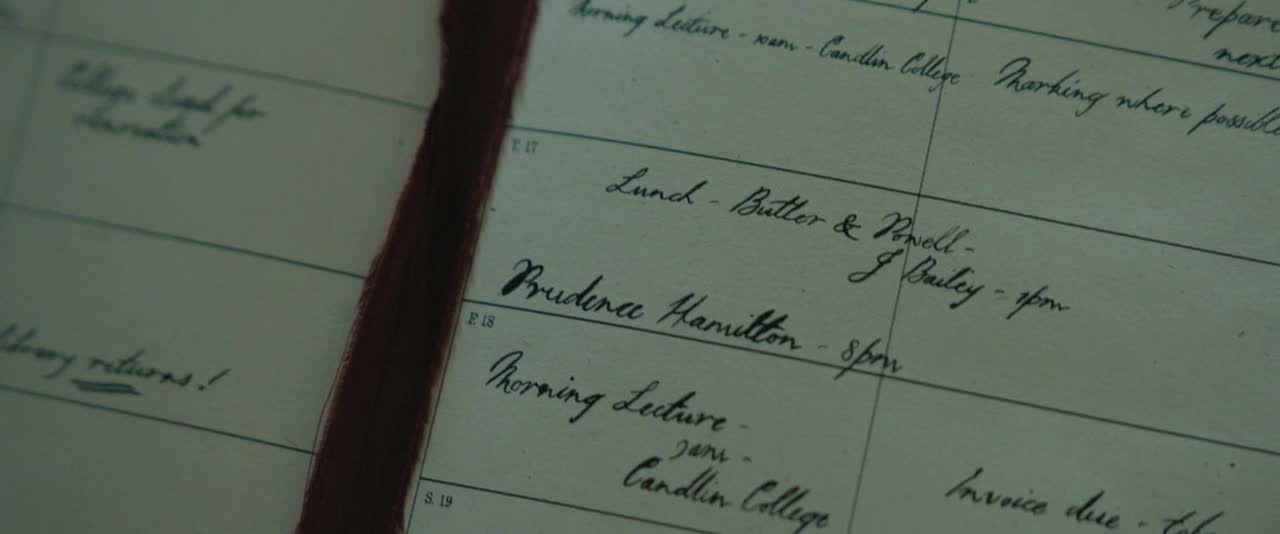 Prepare
next
Morning Lecture - 10am - Candlin College
Marking where possible
College
T. 17
Lunch - Butler & Powell -
J Bailey - 1pm
Prudence Hamilton - 8pm
F. 18
library returns!
Morning Lecture -
Candlin College
Invoice due -
S. 19